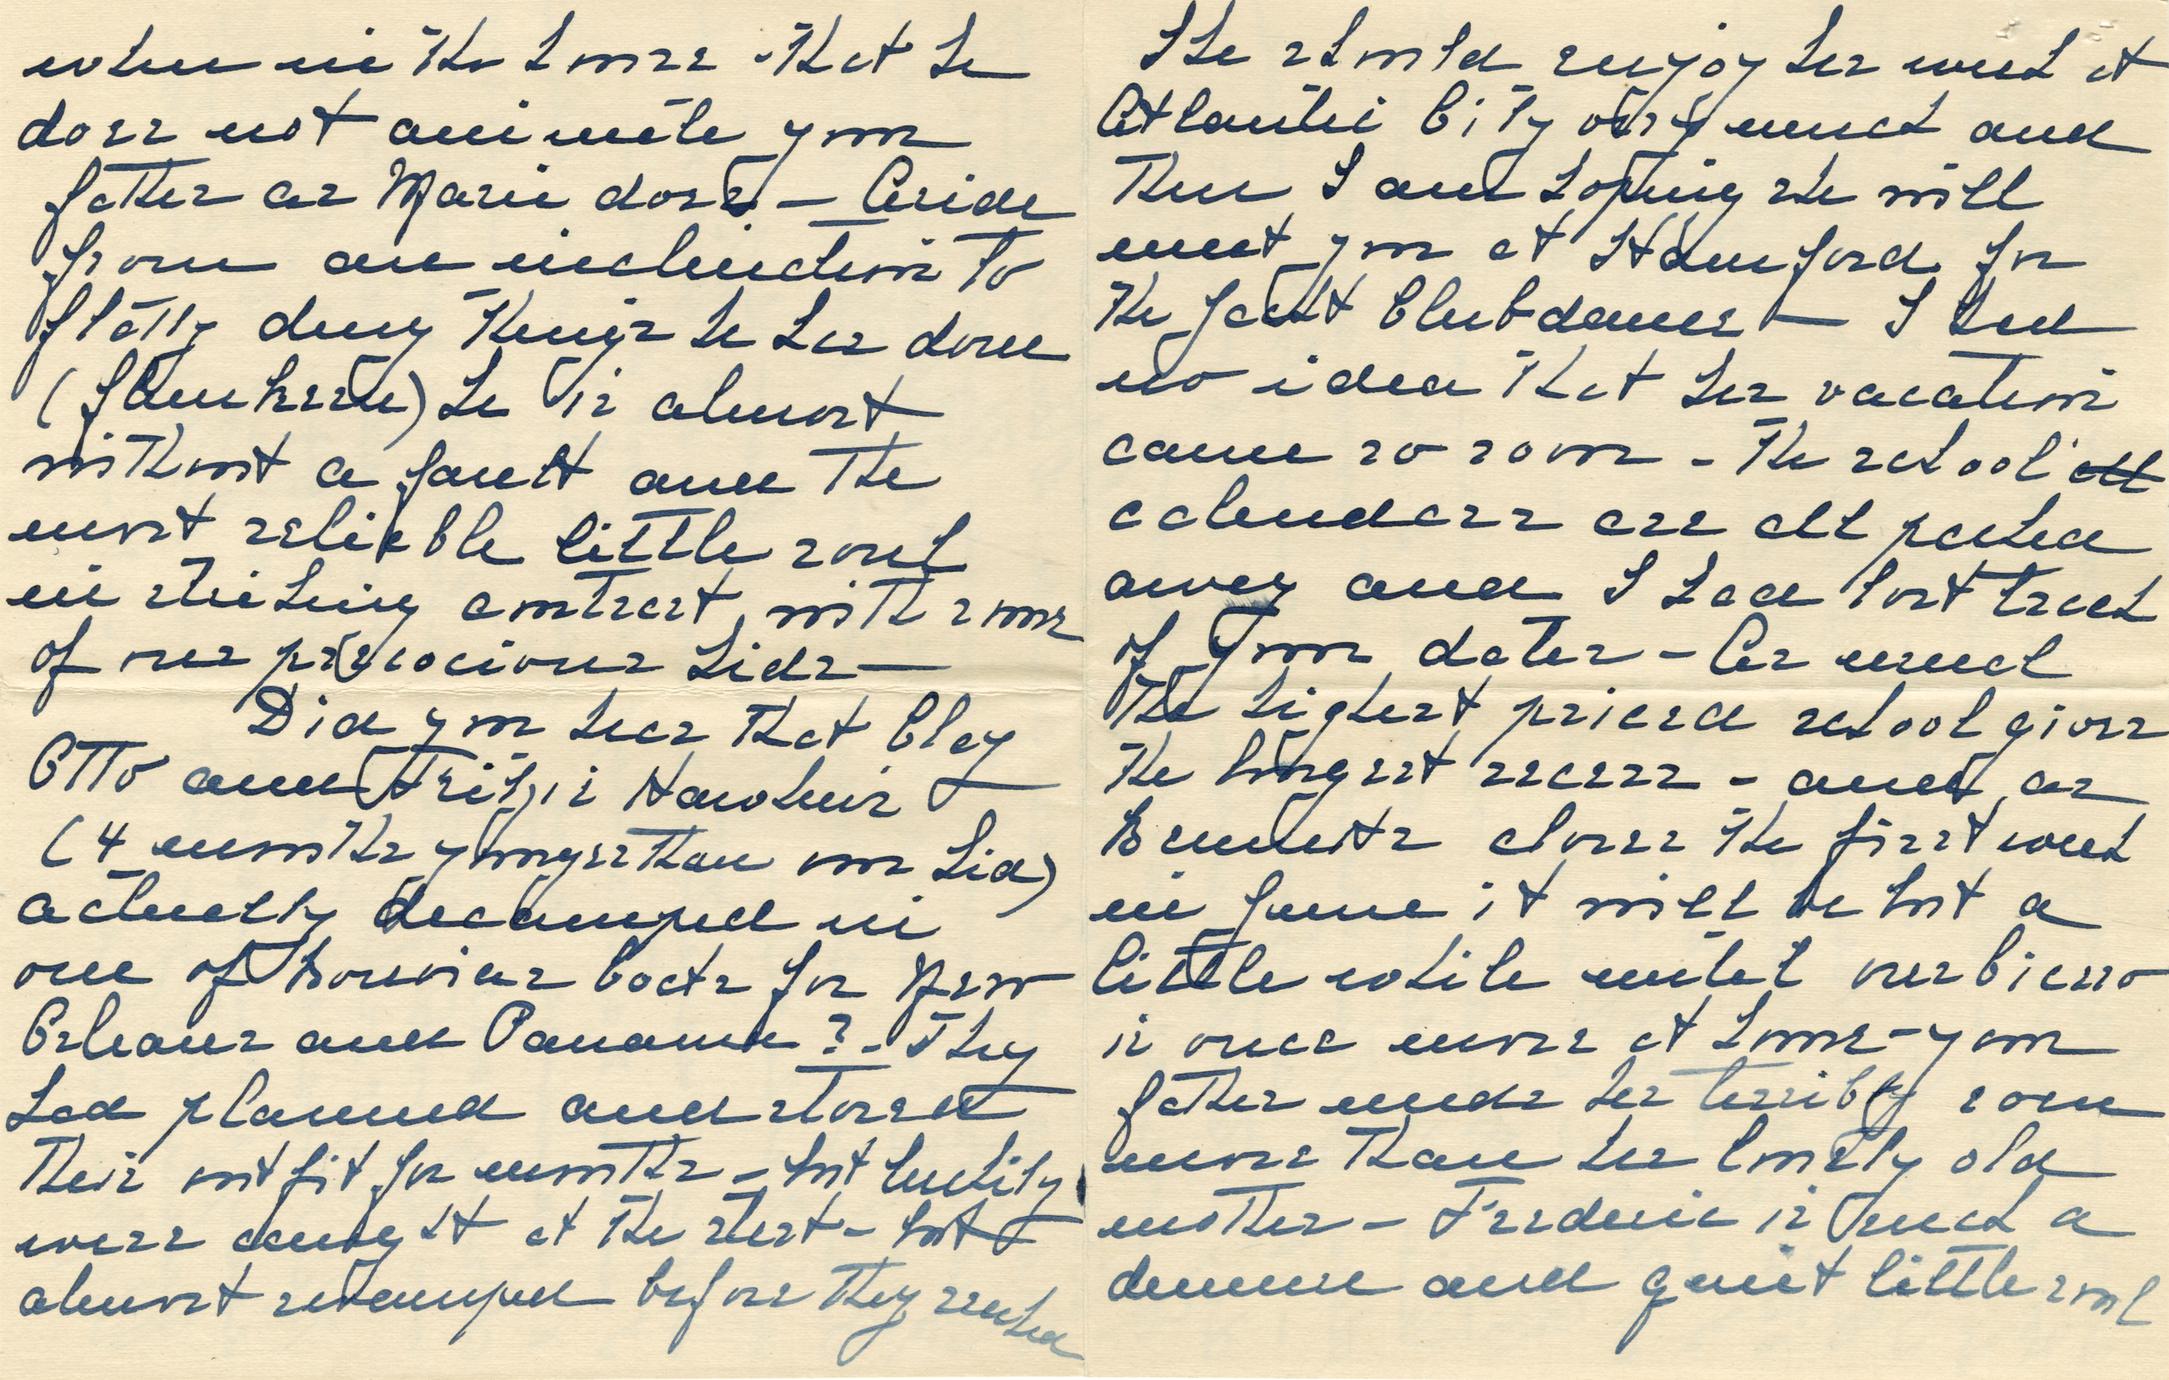 when in the house - that he
does not animate your
father as Marie does - Aside
from an inclination to
flatly deny things he has done
he is almost
without a fault and the
most reliable little soul
in striking contrast with some
of our precocious kids -
Did you hear that Clay
Otto and Fritzie Hawkins
(4 months younger than our kid)
actually decamped in
one of boats for New
Orleans and Panama? - They
had planned and stored
their outfit for months - but luckily
were caught at the start - but
almost escaped before they reached
She should enjoy her week at
Atlantic City very much and
then I am hoping she will
meet you at Stamford for
the Yacht Club dance - I had
no idea that her vacation
came so soon - The school all
calendars are all packed
away and I had lost track
of your dates - As usual
the highest priced school gives
the longest recess - and as
Bennetts closes the first week
in June it will be but a
little while until our
is once more at home - your
father needs her terribly
more than her lonely old
mother - Frederic is such a
demure and quiet little soul